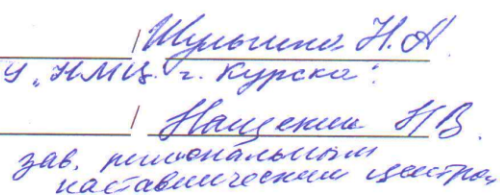 / Шульгина Н.А.
У „НМЦ г. Курска".
/ Нащекин НВ.
зав. региональным
наставническим центром